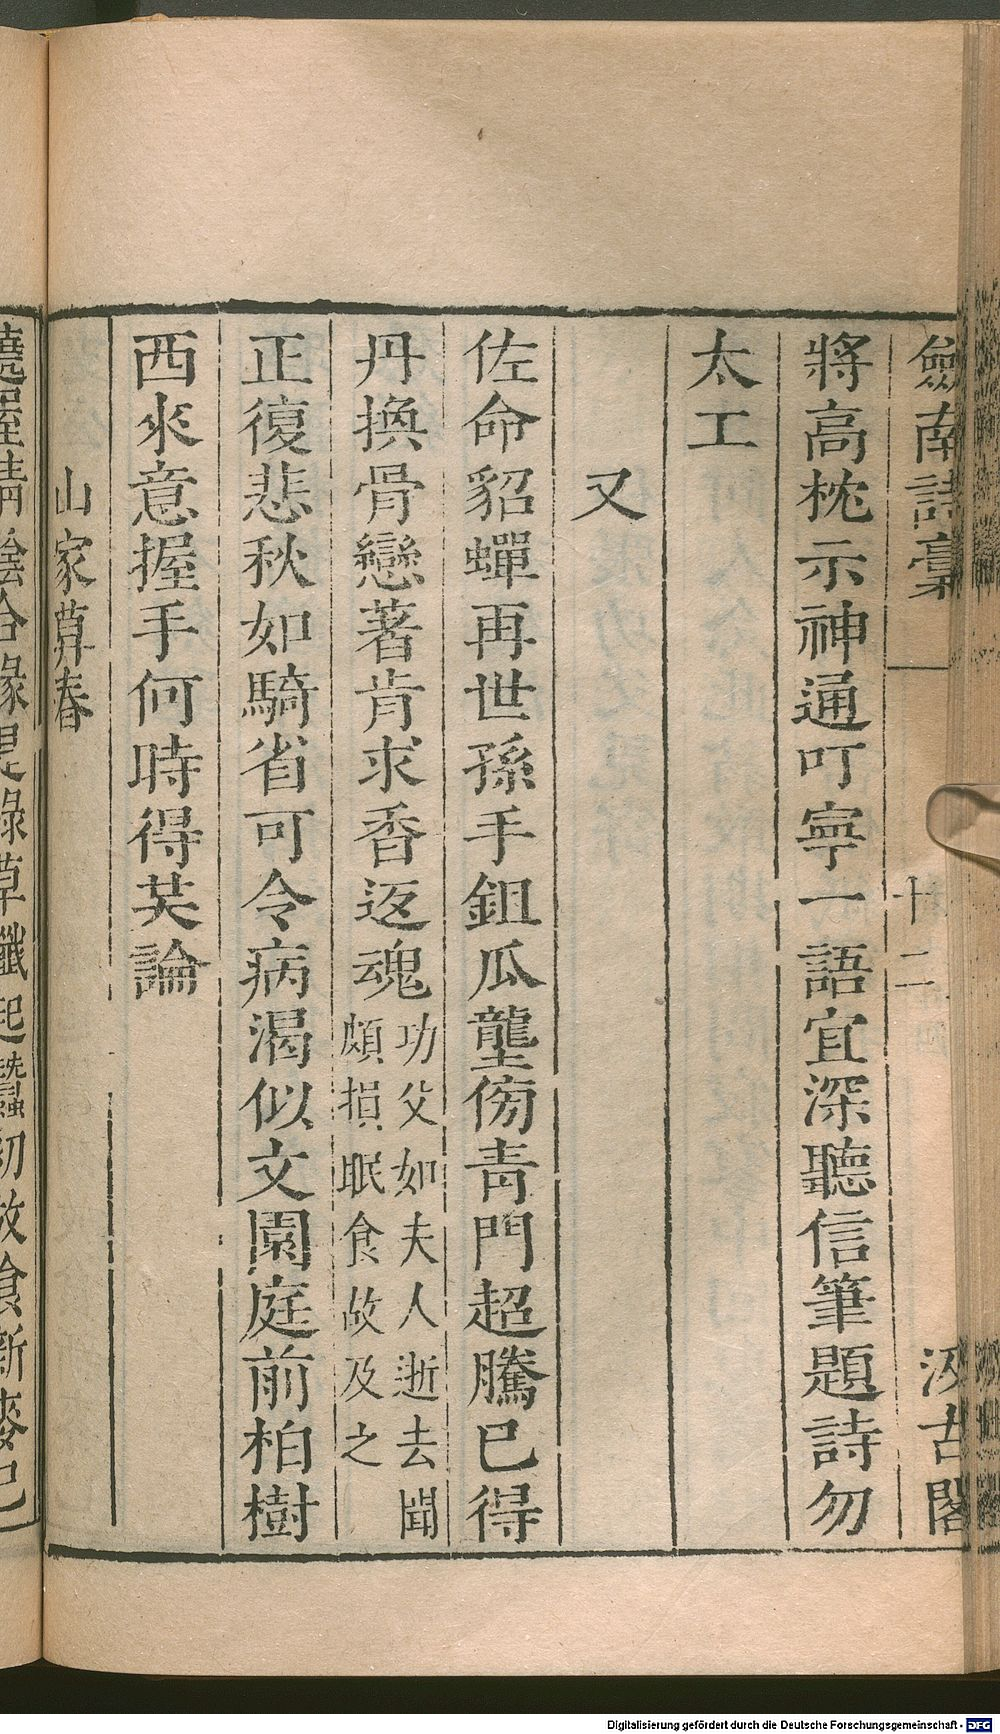 劍南詩稾 十二 汲古閣
將高枕示神通叮寧一語宜深聽信筆題詩勿
太工
又
佐命貂蟬再世孫手鉏瓜壟傍青門超騰已得
丹換骨戀著肯求香返魂
功父如夫人逝去聞
頗損眠食故及之
正復悲秋如騎省可令病渴似文園庭前柏樹
西來意握手何時得共論
山家暮春
遶屋清陰合緣堤綠草纖起蠶初放食新麥已
Digitalisierung gefördert durch die Deutsche Forschungsgemeinschaft - DFG